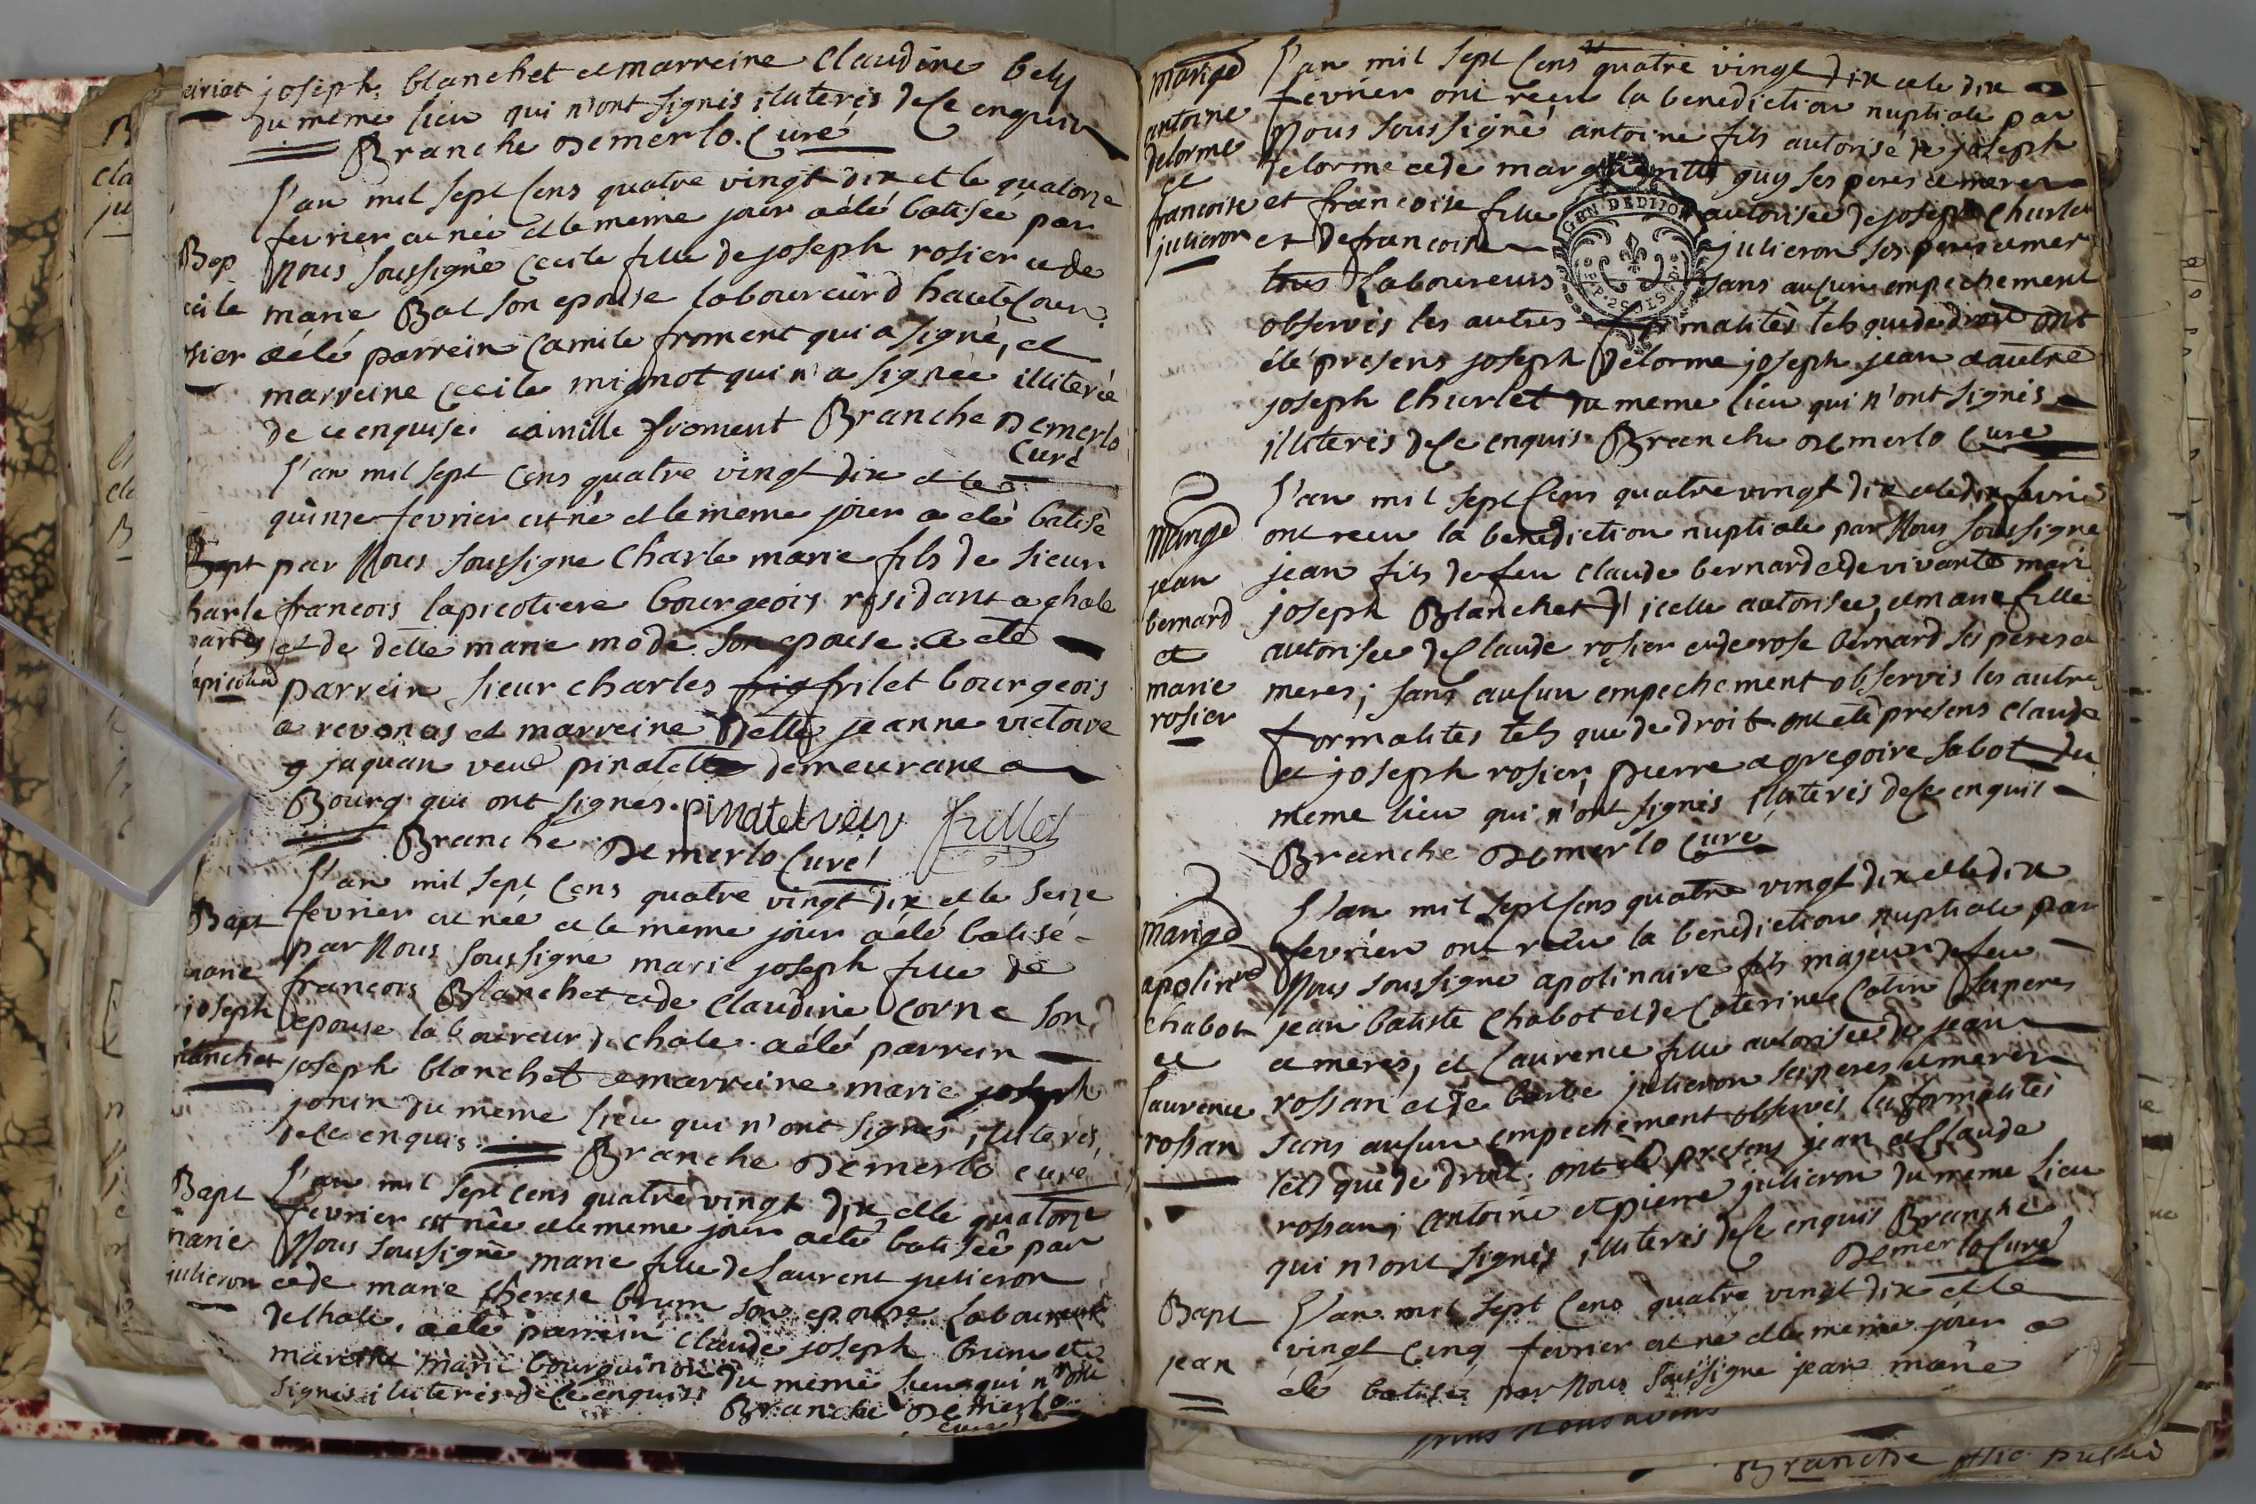 joseph blanchet et marreine Claudine bely
du meme lieu qui n'ont signés illiterés de ce enquis
Branche Demerlo. Curé
L'an mil sept Cens quatre vingt dix et le quatorze
fevrier et née et le meme jour a été batisée par
Bap
nous soussigné Cecile fille de joseph rosier et de
marie Bal son epouse laboureur d hautecour.
a été parrein Camile froment qui a signé, et
marreine Cecile mignot qui n'a signée illiterée
de ce enquise. camille froment Branche Demerlo
Curé
L'an mil sept Cens quatre vingt dix et le
quinze fevrier est né et le meme jour a été batisé
Bapt par Nous soussigne Charle marie fils de sieur
harle francois lapicotiere bourgeois residant a chale
et de delle marie mode son epouse. a été
parrein sieur charles frig frilet bourgeois
a revonas et marreine Delle jeanne victoire
g jaquan veue pinatelle demeurane a
Bourg qui ont signés. pinatel veuv frillet
Branche Demerlo Curé
L'an mil sept Cens quatre vingt dix et le seize
Bapt fevrier est née et le meme jour a été batisé
par Nous soussigné marie joseph fille de
marie francois Blanchet et de Claudine Corne son
joseph epouse laboureur d chale a été parrein
blanchet joseph blanchet et marreine marie joseph
jonin du meme lieu qui n'ont signés illiterés,
de ce enquis. Branche Demerlo curé
Bapt L'an mil sept cens quatre vingt dix et le quatorze
fevrier est née et le meme jour a été batisée par
marie Nous soussigné marie fille de Laurent julieron
julieron et de marie therese brun son epouse Laboureur
de chale. a été parrein Claude joseph brun et
marie bourguinon du meme lieu qui n'ont
signés illiterés de ce enquis
Branche Demerlo
curé
mariage L'an mil sept Cens quatre vingt dix et le dix
fevrier ont reçu la benediction nuptiale par
antoine Nous soussigné antoine fils autorisé de joseph
delorme delorme et de marguerite guy ses peres et meres
et
francoise et francoise fille autorisée de joseph Churlet
julieron et de francoise julieron ses peres et mer
tous Laboureurs sans aucun empechement
observés les autres formalités tels que de droit ont
été presens joseph Delorme joseph jean et autre
joseph Churlet du meme lieu qui n'ont signés
illiteris de ce enquis. Branche Demerlo Curé
L'an mil sept Cens quatre vingt dix et le dix fevrier
mariage ont reçu la benediction nuptiale par Nous soussigne
jean jean fils de feu claude bernard et de vivante mari
bernard joseph Blanchet d icelle autorisée, et marie fille
et autorisée de Claude rosier et de rose bernard ses peres et
marie meres; sans aucun empechement observés les autres
rosier formalités tels que de droit. ont été presens claude
et joseph rosier, pierre et gregoire sabot du
meme lieu qui n'ont signés illiterés de ce enquis
Branche Demerlo Curé
L'an mil sept Cens quatre vingt dix et le dix
mariage fevrier ont reçu la benediction nuptiale par
Nous soussigne apolinaire fils majeur de feu
chabot jean batiste Chabot et de Caterine Colin ses peres
et et meres, et Laurence fille autorisée de jean
laurence rossan et de barbe julieron ses peres et meres
rossan sans aucun empechement observés les formalités
tels que de droit. ont été presens jean et Claude
rossan, antoine et pierre julieron du meme Lieu
qui n'ont signés illiterés de ce enquis Branche
Demerlo Curé
Bapt L'an mil sept Cens quatre vingt dix et le
vingt cinq fevrier est né et le meme jour a
jean été batisé par Nous soussigne jean marie
GEN. DE DIJON
Branche